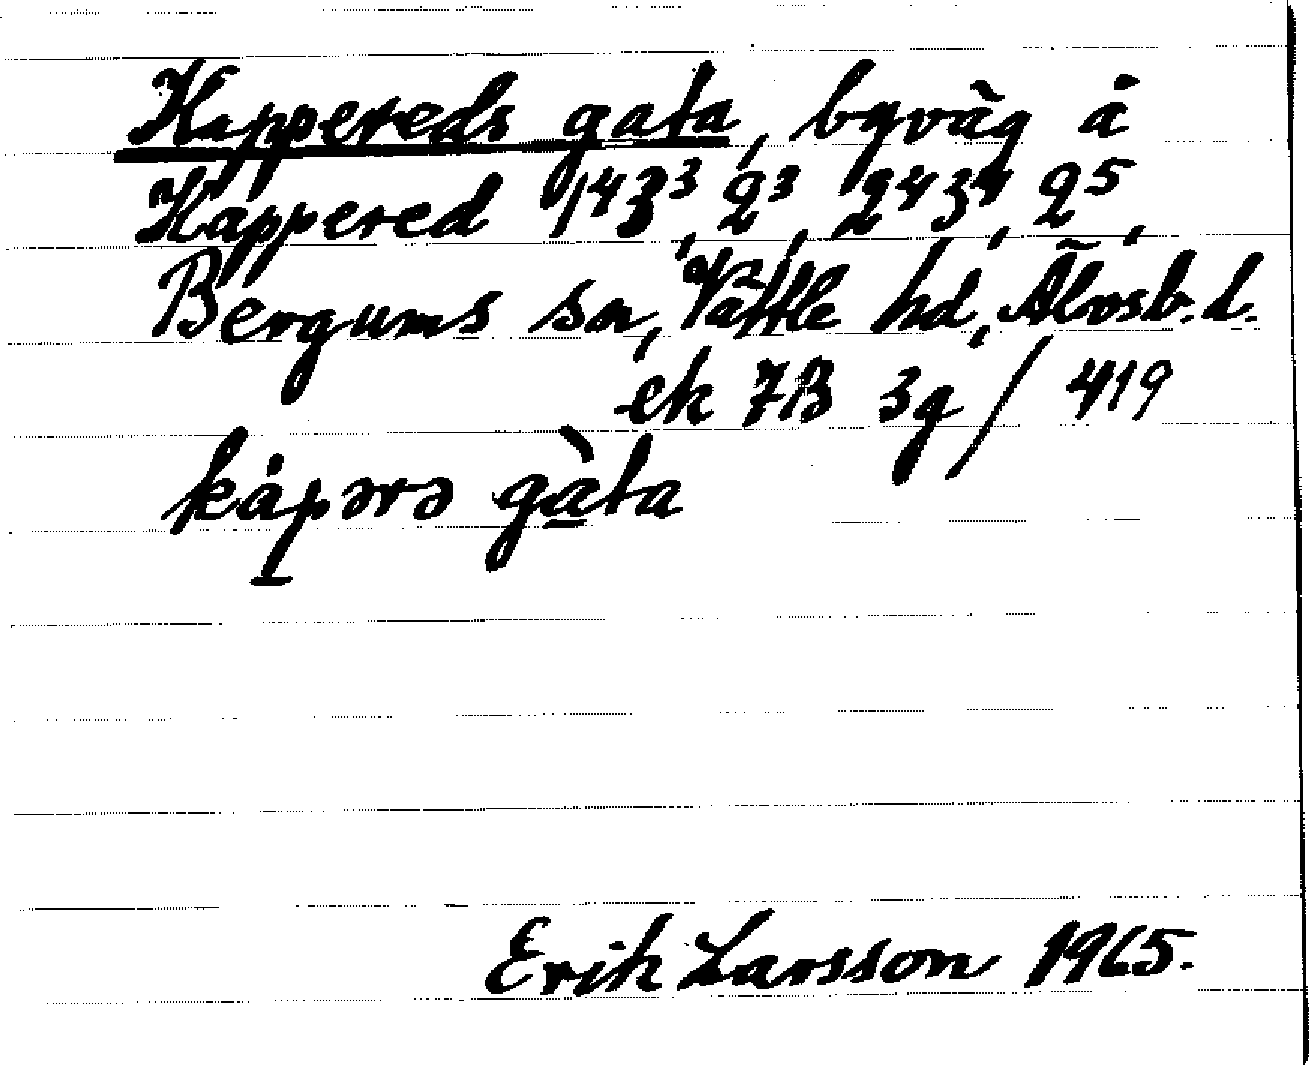 Kappereds gata, byväg å
Kappered 1⁴3³, 2³, 2⁴3⁴, 2⁵,
Bergums sn, Vättle hd, Älvsb. l.
ek 7B 3g / 419
kåpərə gàta
Erik Larsson 1965.